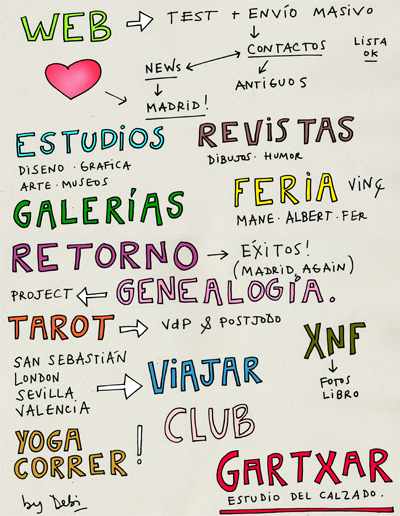 WEB → TEST + ENVÍO MASIVO
CONTACTOS
LISTA
OK
NEWS
ANTIGUOS
MADRID!
ESTUDIOS
DISENO · GRAFICA
ARTE · MUSEOS
REVISTAS
DIBUJOS · HUMOR
FERIA VINÇ
MANE · ALBERT · FER
GALERÍAS
RETORNO → EXÍTOS!
(MADRID, AGAIN)
PROJECT ← GENEALOGÍA.
TAROT → VdP & POSTJODO
XNF
FOTOS
LIBRO
SAN SEBASTIÁN
LONDON
SEVILLA
VALENCIA
→ VIAJAR
CLUB
YOGA
CORRER!
GARTXAR
ESTUDIO DEL CALZADO.
by Debi